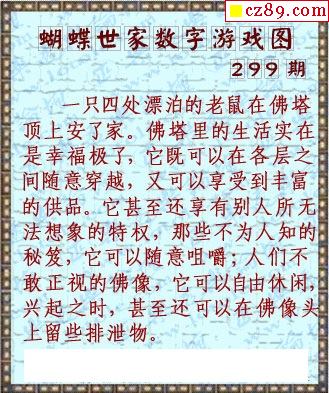 cz89.com
蝴蝶世家数字游戏图
299期
一只四处漂泊的老鼠在佛塔
顶上安了家。佛塔里的生活实在
是幸福极了,它既可以在各层之
间随意穿越,又可以享受到丰富
的供品。它甚至还享有别人所无
法想象的特权,那些不为人知的
秘笈,它可以随意咀嚼;人们不
敢正视的佛像,它可以自由休闲,
兴起之时,甚至还可以在佛像头
上留些排泄物。